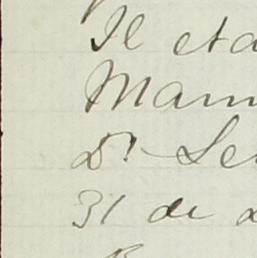 Il eta
Mam
Dr Le
31 de